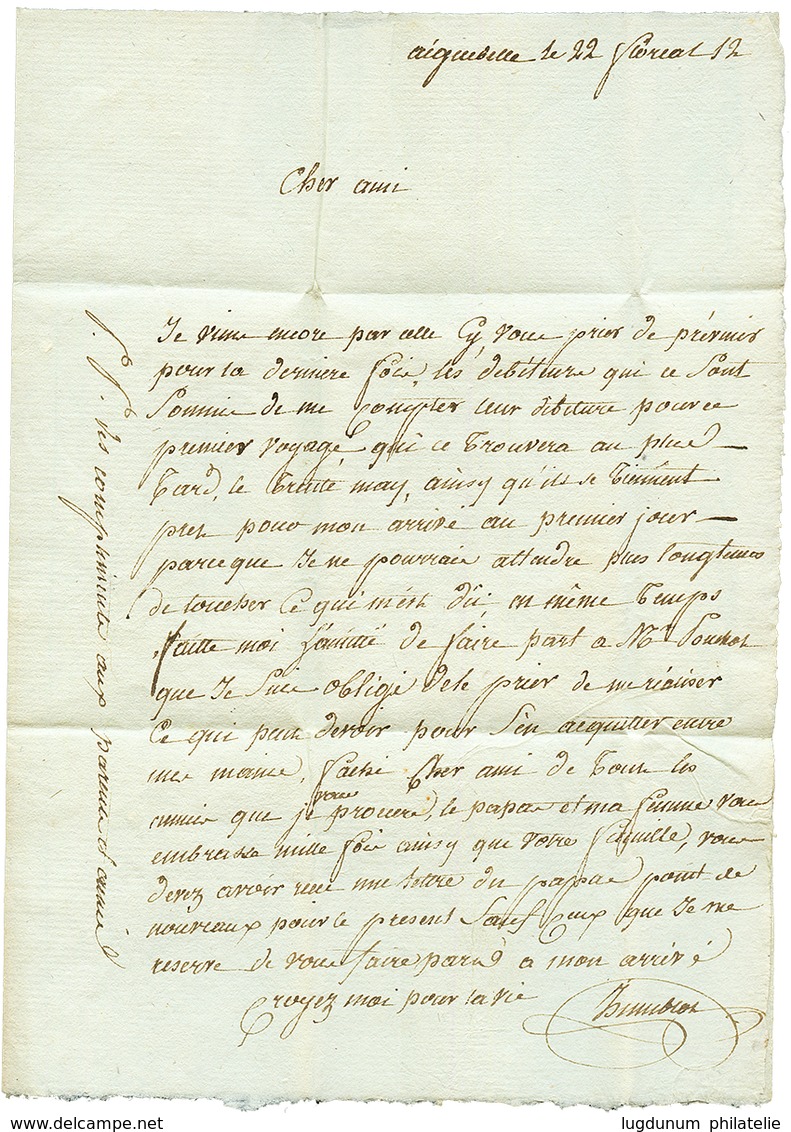 aiguebelle le 22 floreal 12
Cher ami
Je viens encore par celle Cÿ vous prier de prévenir
pour la derniere fois, les débiteurs qui ce sont
Soumis de me compter leur débiture pour ce
premier voyage qui ce trouvera au plus
tard, le trente may, ainsy qu'ils se tiennent
pret pour mon arrivé au premier jour
parceque Je ne pourrais attendre plus longtems
de toucher Ce qui m'est dû en même temps
faitte moi l'amitié de faire part a Mr
que Je suis obligé de le prier de me réaliser
Ce qui peut devoir pour s'en acquitter entre
mes mains, Cher ami de tous les
ennuis que je vous procure, le papas et ma femme vous
embrasse mille fois ainsy que votre famille, vous
devez avoir reçu une lettre du papas point de
nouveaux pour le present sauf Ceux que Je me
reserve de vous faire pard a mon arrivé
Croyez moi pour la vie
P. S. des compliments aux parents et amis
lugdunum philatelie